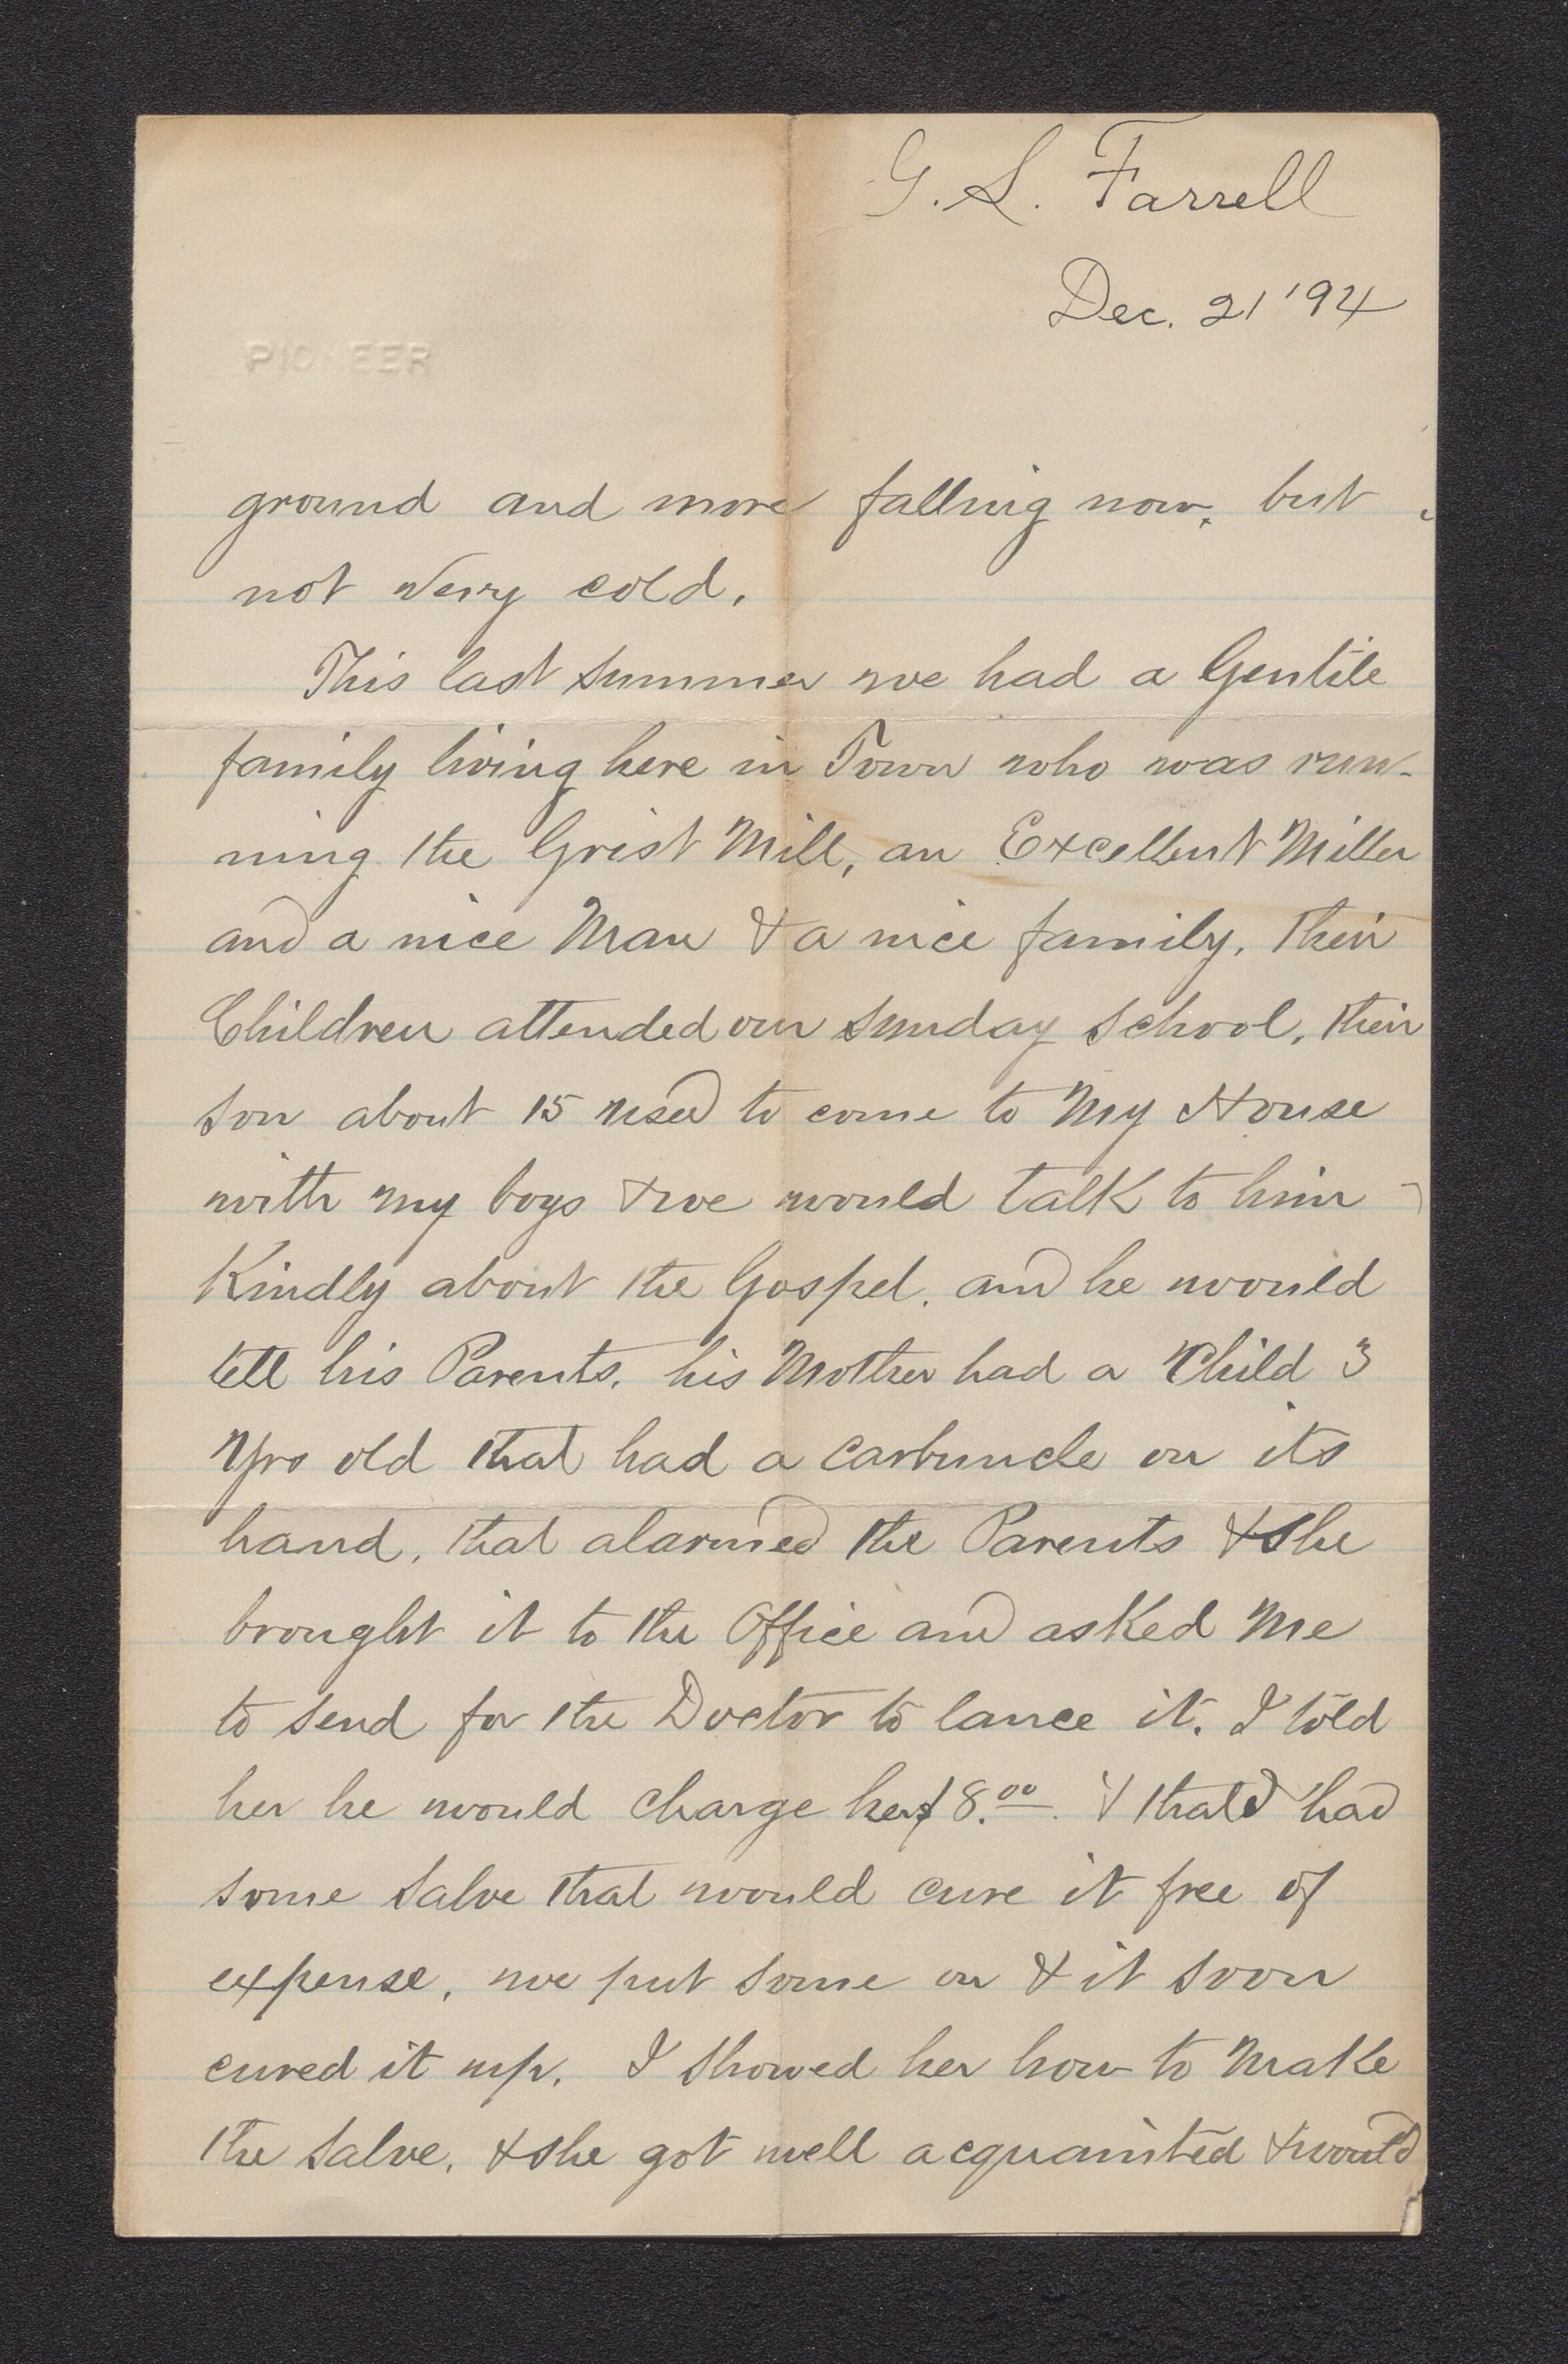 G. L. Farrell
Dec. 21 '94
PIONEER
ground and more falling now, but
not very cold.
This last summer we had a Gentile
family living here in Town who was run-
ning the Grist Mill, an Excellent Miller
and a nice Man & a nice family, Their
Children attended our Sunday School, their
son about 15 used to come to My House
with my boys & we would talk to him
Kindly about the Gospel. and he would
tell his Parents. his Mother had a Child 3
yrs old that had a Carbuncle on its
hand, that alarmed the Parents & she
brought it to the Office and asked Me
to send for the Doctor to lance it. I told
her he would charge her $8.00. & that I had
some Salve that would cure it free of
expense, we put some on & it soon
cured it up. I showed her how to Make
the Salve. & she got well acquainted & would